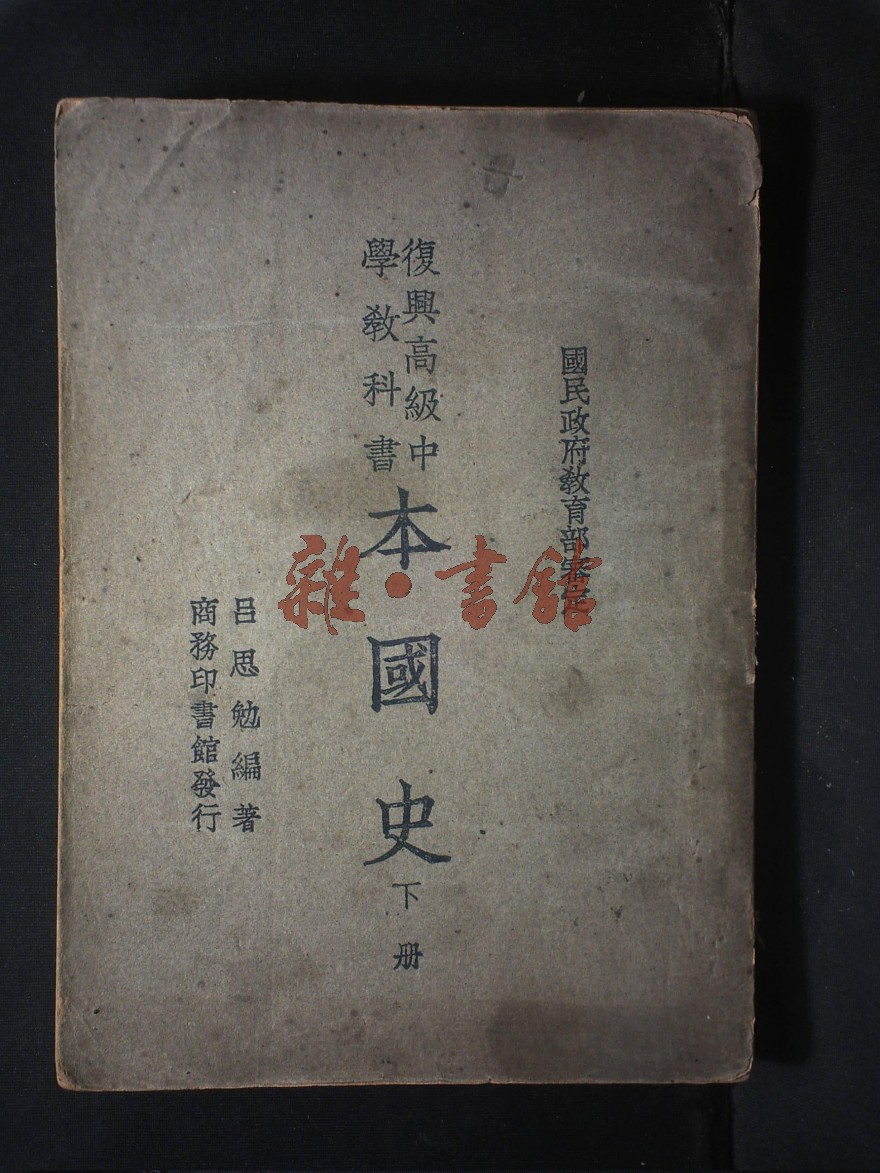 國民政府教育部審定
復興高級中
學教科書
本國史
下册
呂思勉編著
商務印書館發行
雜·書館